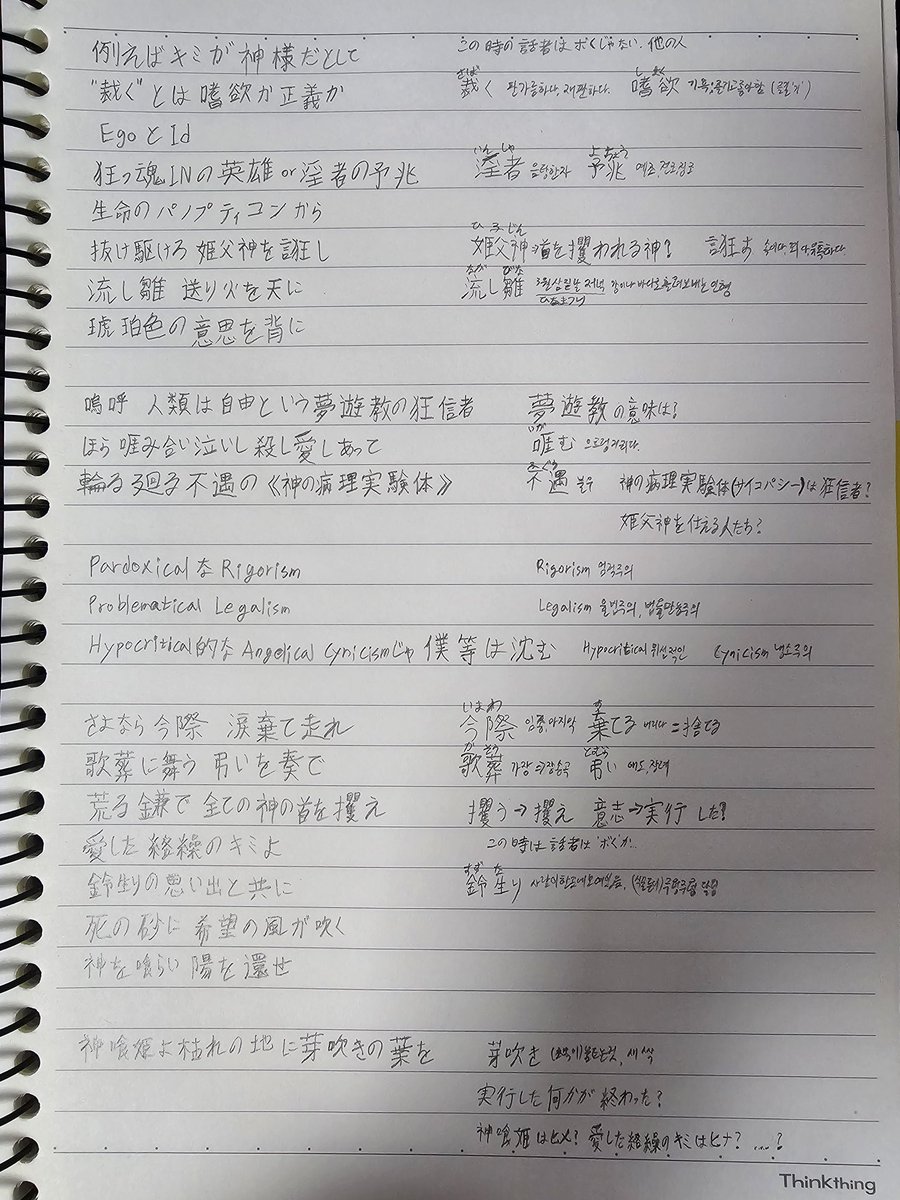 例えばキミが神様だとして この時の話者はボクじゃない、他の人
"裁く"とは嗜欲か正義か さば 裁く 판가름하다, 재판하다. 嗜欲
EgoとId
狂っ魂INの英雄or淫者の予兆 いんしゃ 淫者 음탕한자 よちょう 予兆 예조, 전조, 징조
生命のパノプティコンから
抜け駆けろ 姫父神を誑し 姫父神⇒首を攫われる神? 誑す
流し雛 送り火を天に なが びな 流し雛
琥珀色の意思を背に
嗚呼 人類は自由という夢遊教の狂信者 夢遊教の意味は?
ほら啀み合い泣いし殺し愛しあって いが 啀む 으르렁거리다.
輪る廻る不遇の《神の病理実験体》 不遇 불우 神の病理実験体(サイコパシー)は狂信者?
姫父神を仕える人たち?
PardoxicalなRigorism Rigorism 엄격주의
Problematical Legalism Legalism 율법주의, 법률만능주의
Hypocritical的なAngelical Cynicismじゃ僕等は沈む Hypocritical 위선적인 Cynicism 냉소주의
さよなら今際 涙棄て走れ いまわ 今際 임종, 마지막 す 棄てる 버리다 = 捨てる
歌葬に舞う弔いを奏で かそう 歌葬 가장⇒장송곡 とむら 弔い
荒る鎌で全ての神の首を攫え 攫う→攫え 意志⇒実行した!
愛した絡繰のキミよ この時は話者は"ボク"か...
鈴生りの思い出と共に すずな 鈴生り
死の砂に希望の風が吹く
神を喰らい陽を還せ
神喰姫よ枯れの地に芽吹きの葉を 芽吹き (초목이) 움트는것, 새싹
実行した何かが終わった?
神喰姫はヒメ? 愛した絡繰のキミはヒナ? ....?
Thinkthing